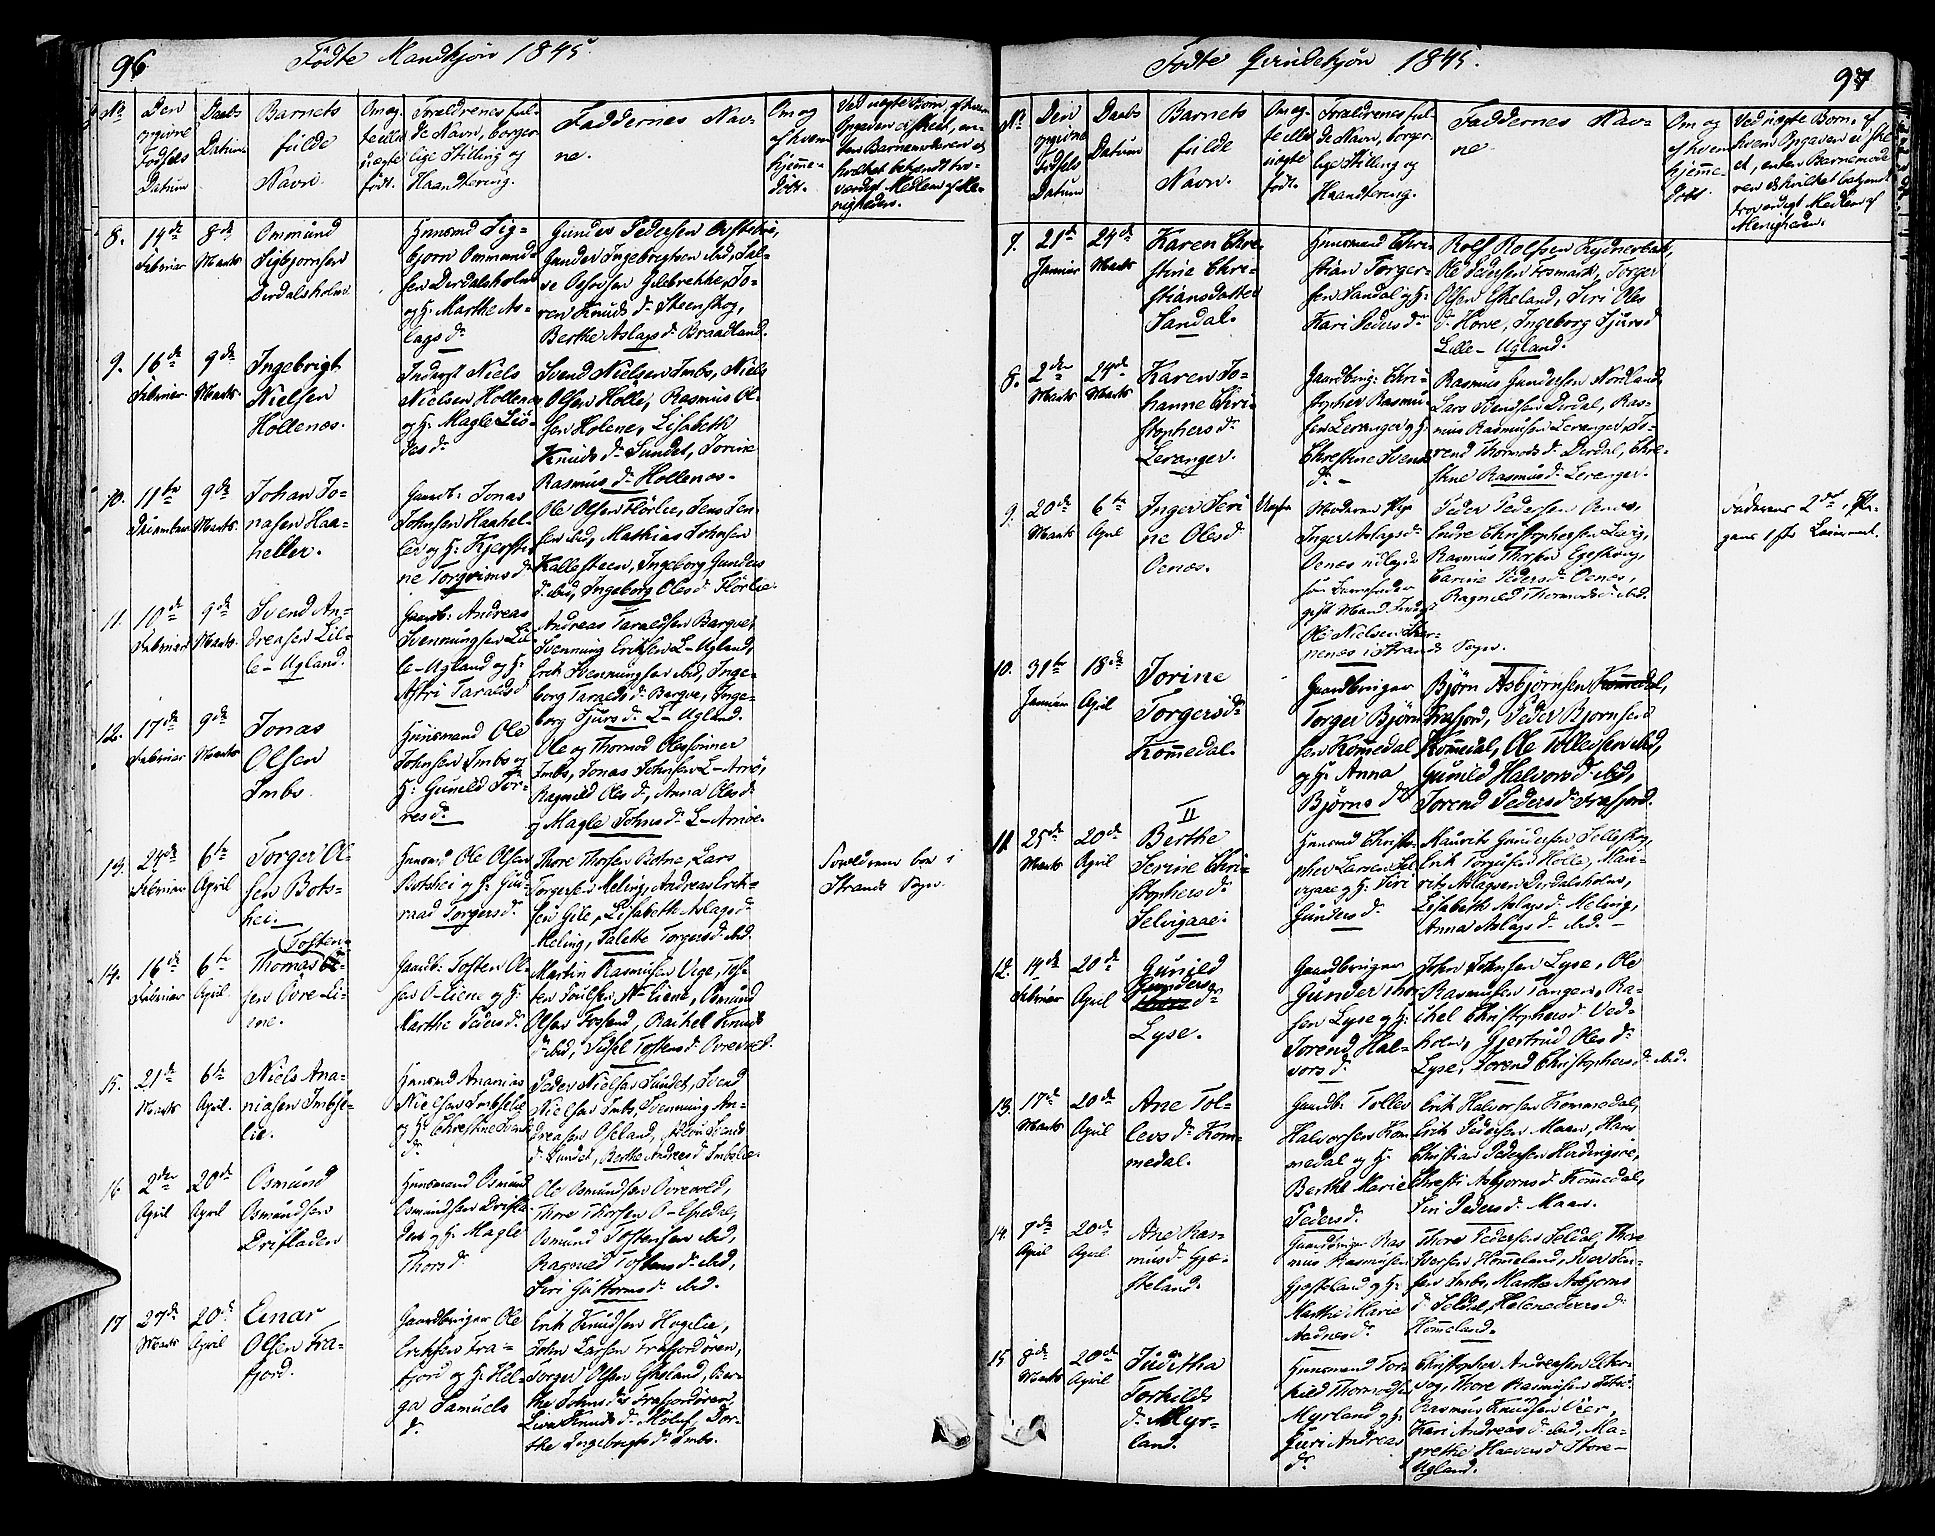 96
Fødte Mandkjøn 1845
No
Den
opgivne
Fødsels
Datum
Daabs
Datum
Barnets
fulde
Navn.
Om eg-
te eller
uegte
født.
Forældrenes ful-
de Navn, borger-
lige Stilling og
Haandtering.
Faddernes Nav-
ne.
Om og
af hvem
hjemme-
døbt.
8.
14de
Februar
8de
Marts
Ommund
Sigbjørnsen
Dirdalsholm
Huusmd Sig-
bjørn Ommund-
sen Dirdalsholm
og H. Marthe As-
lags dr
Gunder Pedersen
Gunder Ingebrigtsen ibid, Sal-
ve Osmundsen Gilebrekke, To-
ren Knuds dr Steenskog,
Berthe Aslags dr Braadland.
9.
16de
Februar
9de
Marts
Ingebrigt
Nielsen
Hollenæs.
Inderst Niels
Nielsen Hollenæs
og H. Magle
Svend Nielsen Imbs, Niels
Olsen Holle, Rasmus Ol-
sen Holene, Lisabeth
Knuds dr Sundet, Torine
Rasmus dr Hollenæs.
10.
11te
9de
Marts
Johan Jo-
nasen Haa-
heller.
Gaardb: Jonas
Johnsen Haahel-
ler og H. Kjersti-
ne Torgrims dr
Ole Olsen Flørlie, Jens Jen-
sen ibid, Mathias Johnsen
Kallesteen, Ingeborg Gunders
dr ibid, Ingeborg Oles dr Flørlie.
11.
10de
Februar
9de
Marts.
Svend An-
dreasen Lil-
le-Ugland.
Gaardb: Andreas
Svenningsen Lil-
le-Ugland og H.
Astri Taralds dr
Andreas Taraldsen Bergve,
Svenning Eriksen L-Ugland,
Erik Svenningsen ibid, Inge-
borg Taralds dr Bergve, Inge-
borg Sjurs dr L-Ugland.
12.
17de
Februar
9de
Marts
Jonas
Olsen
Imbs.
Huusmand Ole
Johnsen Imbs og
H. Gunild Tor-
res dr
Ole og Thormod Olessønner
Imbs, Jonas Johnsen L-Amø,
Ragnild Oles dr, Anna Oles dr
og Magle Johns dr L-Amøe.
13.
24de
Februar
6te
April
Torger Ol-
sen Bots-
hei
Huusmd Ole Olsen
Botshei og H. Gu-
raad Torgers dr
Thore Thorsen Botne, Lars
Torgersen Meling, Andreas Erik-
sen Gile, Lisabeth Aslags dr
Meling, Talette Torgers dr ibid.
Forældrene boe i
Strands Sogn.
14.
16de
Februar
6te
April.
Tosten-
Thomas
sen Øvre-Li-
ene.
Gaardb: Tosten Ol-
sen Ø-Liene og H.
Marthe Peders dr
Martin Rasmusen Vige, Tos-
ten Poulsen N-Liene, Osmund
Olsen Fossand, Rachel Knuds
dr ibid, Sidsel Tostens dr Øvrevold.
15.
21de
Marts
6te
April.
Niels Ana-
niasen Imbse-
lie.
Huusmd Ananias
Nielsen Imbselie
og H. Christine Svends
dr
Peder Nielsen Sundet, Svend
Nielsen Imbs, Svenning An-
dreasen Oseland, Svends
dr Sundet, Berthe Andreas dr Imbslie.
16
2den
April
20de
April
Osmund
Osmundsen
Drifladen
Huusmand Osmund
Osmundsen Drifla-
den og H. Magle
Thors dr
Ole Osmundsen Øvrevold,
Thore Thorsen Ø-Espedal,
Osmund Tostensen ibid,
Ragnild Tostens dr ibid,
Siri Guttorms dr ibid.
17
27de
Marts
20de
April
Einar
Olsen Fra-
fjord.
Gaardbruger Ole
Eriksen Fra-
fjord og H. Hel-
ga Samuels
dr
Erik Knudsen Hogelie,
John Larsen Frafjordøren,
Torger Olsen Eskeland, Ber-
the Johns dr Frafjordøren,
Lisa Knuds dr Molaf, Dor-
the Ingebregts dr Imbs.
97
Fødte Qvindekjøn 1845.
No
Den
opgivne
Fødsels
Datum
Daabs
Datum
Barnets
fulde
Navn.
Om eg-
te eller
uegte
født.
Forældrenes ful-
de Navn, borger-
lige Stilling og
Haandtering.
Faddernes Nav-
ne.
Om og
af hvem
hjemme-
døbt.
7.
21de
Januar
24de
Marts
Karen Chri-
stine Chri-
stiansdatter
Sandal.
Huusmand Chri-
stian Torger-
sen Sandal og H.
Kari Peders dr
Rolf Rolfsen
Ole Pedersen Fosmark, Torger
Olsen Eskeland, Siri Oles
dr Horve, Ingeborg Sjurs dr
Lille-Ugland.
8.
2den
Marts
24de
Marts
Karen Jo-
hanne Chri-
stophers dr
Leranger.
Gaardbrug: Chri-
stopher Rasmu-
sen Leranger og H.
Christine Svends
dr -
Rasmus Gundersen Nordland,
Lars Svendsen Dirdal, Ras-
mus Rasmussen Leranger, To-
rend Thormods dr Dirdal, Chri-
stine Rasmus dr Leranger.
9.
20de
Marts
6te
April
Inger Seri-
ne Oles dr
Oenæs.
Uegte
Moderen Pige
Inger Aslags dr
Oenæs udlagde
som Barnefader
gift Mand
Ole Nielsen
i Strands Sogn.
Peder Pedersen Oenæs,
Christophersen Leig,
Rasmus Thorsen Egeskog,
Carine Peders dr Oenæs,
Ragnild Thormods dr ibid.
Faderens 2det,
gens 1ste Leiermaal.
10.
31te
Januar
18de
April
Torine
Torgers dr
Kommedal.
Gaardbruger
Torger Bjørn-
sen Kommedal
og H. Anna
Bjørns dr
Bjørn Asbjørnsen Kommedal,
Frafjord, Peder Bjørnsen
Kommedal, Ole Tollevsen ibid,
Gunild Halvors dr ibid,
Torend Peders dr Frafjord.
11
25de
Marts
20de
April
II
Berthe
Serine Chri-
stophers dr
Selvigaae.
Huusmd Christo-
pher Larsen Sel-
vigaae og H. Siri
Gunders dr
Mauritz Gundersen Selleskog,
Erik Torgersen Holle, Mau-
rits Aslagsen Dirdalsholm,
Lisabeth Aslags dr Meling,
Anna Aslags dr ibid.
12.
14de
Februar
20de
April
Gunild
Gunders
dr
Lyse.
Gaardbruger
Gunder Thor-
sen Lyse og H.
Torend Hal-
vors dr
John Johnsen Lyse, Ole
Rasmusen Tangen, Ra-
chel Christophers dr Ved-
holm, Gjertrud Oles dr
Lyse, Torend Christophers dr ibid.
13.
17de
Marts
20de
April
Ane Tol-
levs dr Kom-
medal.
Gaardb: Tollev
Halvorsen Kom-
medal og H.
Berthe Marie
Peders dr
Erik Halvorsen Kommedal,
Erik Pedersen Maan, Hans
Christian Pedersen
Christi Asbjørns dr Kommedal,
Siri Peders dr Maan.
14.
7de
April
20de
April
Ane Ras-
mus dr Gjø-
steland.
Gaardbruger Ras-
mus Rasmusen
Gjøsteland og H.
Marthe Marie
Aadnes dr
Thore Pedersen Seldal, Thore
Iversen Hommeland, Iver Iver-
sen Imbs, Marthe Asbjørns
dr Seldal, Helene Ivers dr
Hommeland.
15
8de
Marts
20de
April
Juditha
Torkilds
dr Myr-
land.
Huusmand Tor-
kild Thormodsen
Myrland og H.
Guri Andreas
dr
Christopher Andreasen
Thore Rasmusen
Rasmus Knudsen Øier,
Kari Andreas dr ibid, Ma-
grethe Haavars dr Store-
Ugland.